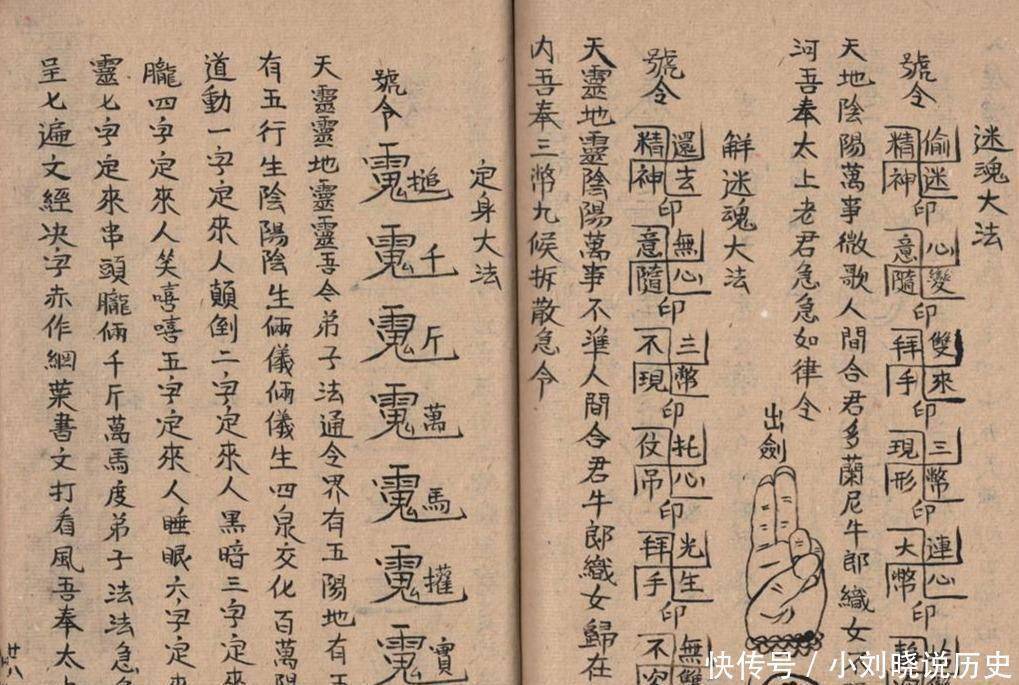 迷魂大法
號令 偷迷精神印 心變意隨印 雙來拜手印 三幣現形印 連心大幣印
天地陰陽萬事微歌人間合君多蘭尼牛郎織女
河吾奉太上老君急急如律令
出劍
解迷魂大法
號令 還去精神印 無心意隨印 三幣不現印 托心仗吊印 光生拜手印 無雙不
天靈地靈陰陽萬事不準人間合君牛郎織女歸在
内吾奉三幣九候拆散急令
定身大法
號令 䰠搥 䰠千 䰠斤 䰠萬 䰠馬 䰠㩲 䰠實
天靈靈地靈靈吾令弟子法通令界有五陽地有五
有五行生陰陽陰生倆儀倆儀生四泉交化百萬陽
道動一字定來人顛倒二字定來人黑暗三字定來
朧四字定來人笑嘻嘻五字定來人睡眠六字定
靈七字定來串頭朧倆千斤萬馬度弟子法法急
呈七遍文經决字赤作綱葉書文打看風吾奉太上
廿八
快传号 / 小刘晓说历史